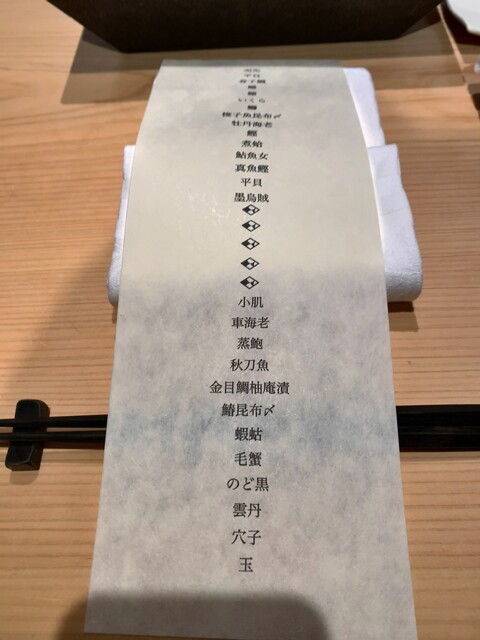 平目
春子鯛
いくら
撫子魚昆布〆
牡丹海老
鰹
煮蛤
鮎魚女
真魚鰹
平貝
墨烏賊
小肌
車海老
蒸鮑
秋刀魚
金目鯛柚庵漬
鰆昆布〆
蝦蛄
毛蟹
のど黒
雲丹
穴子
玉